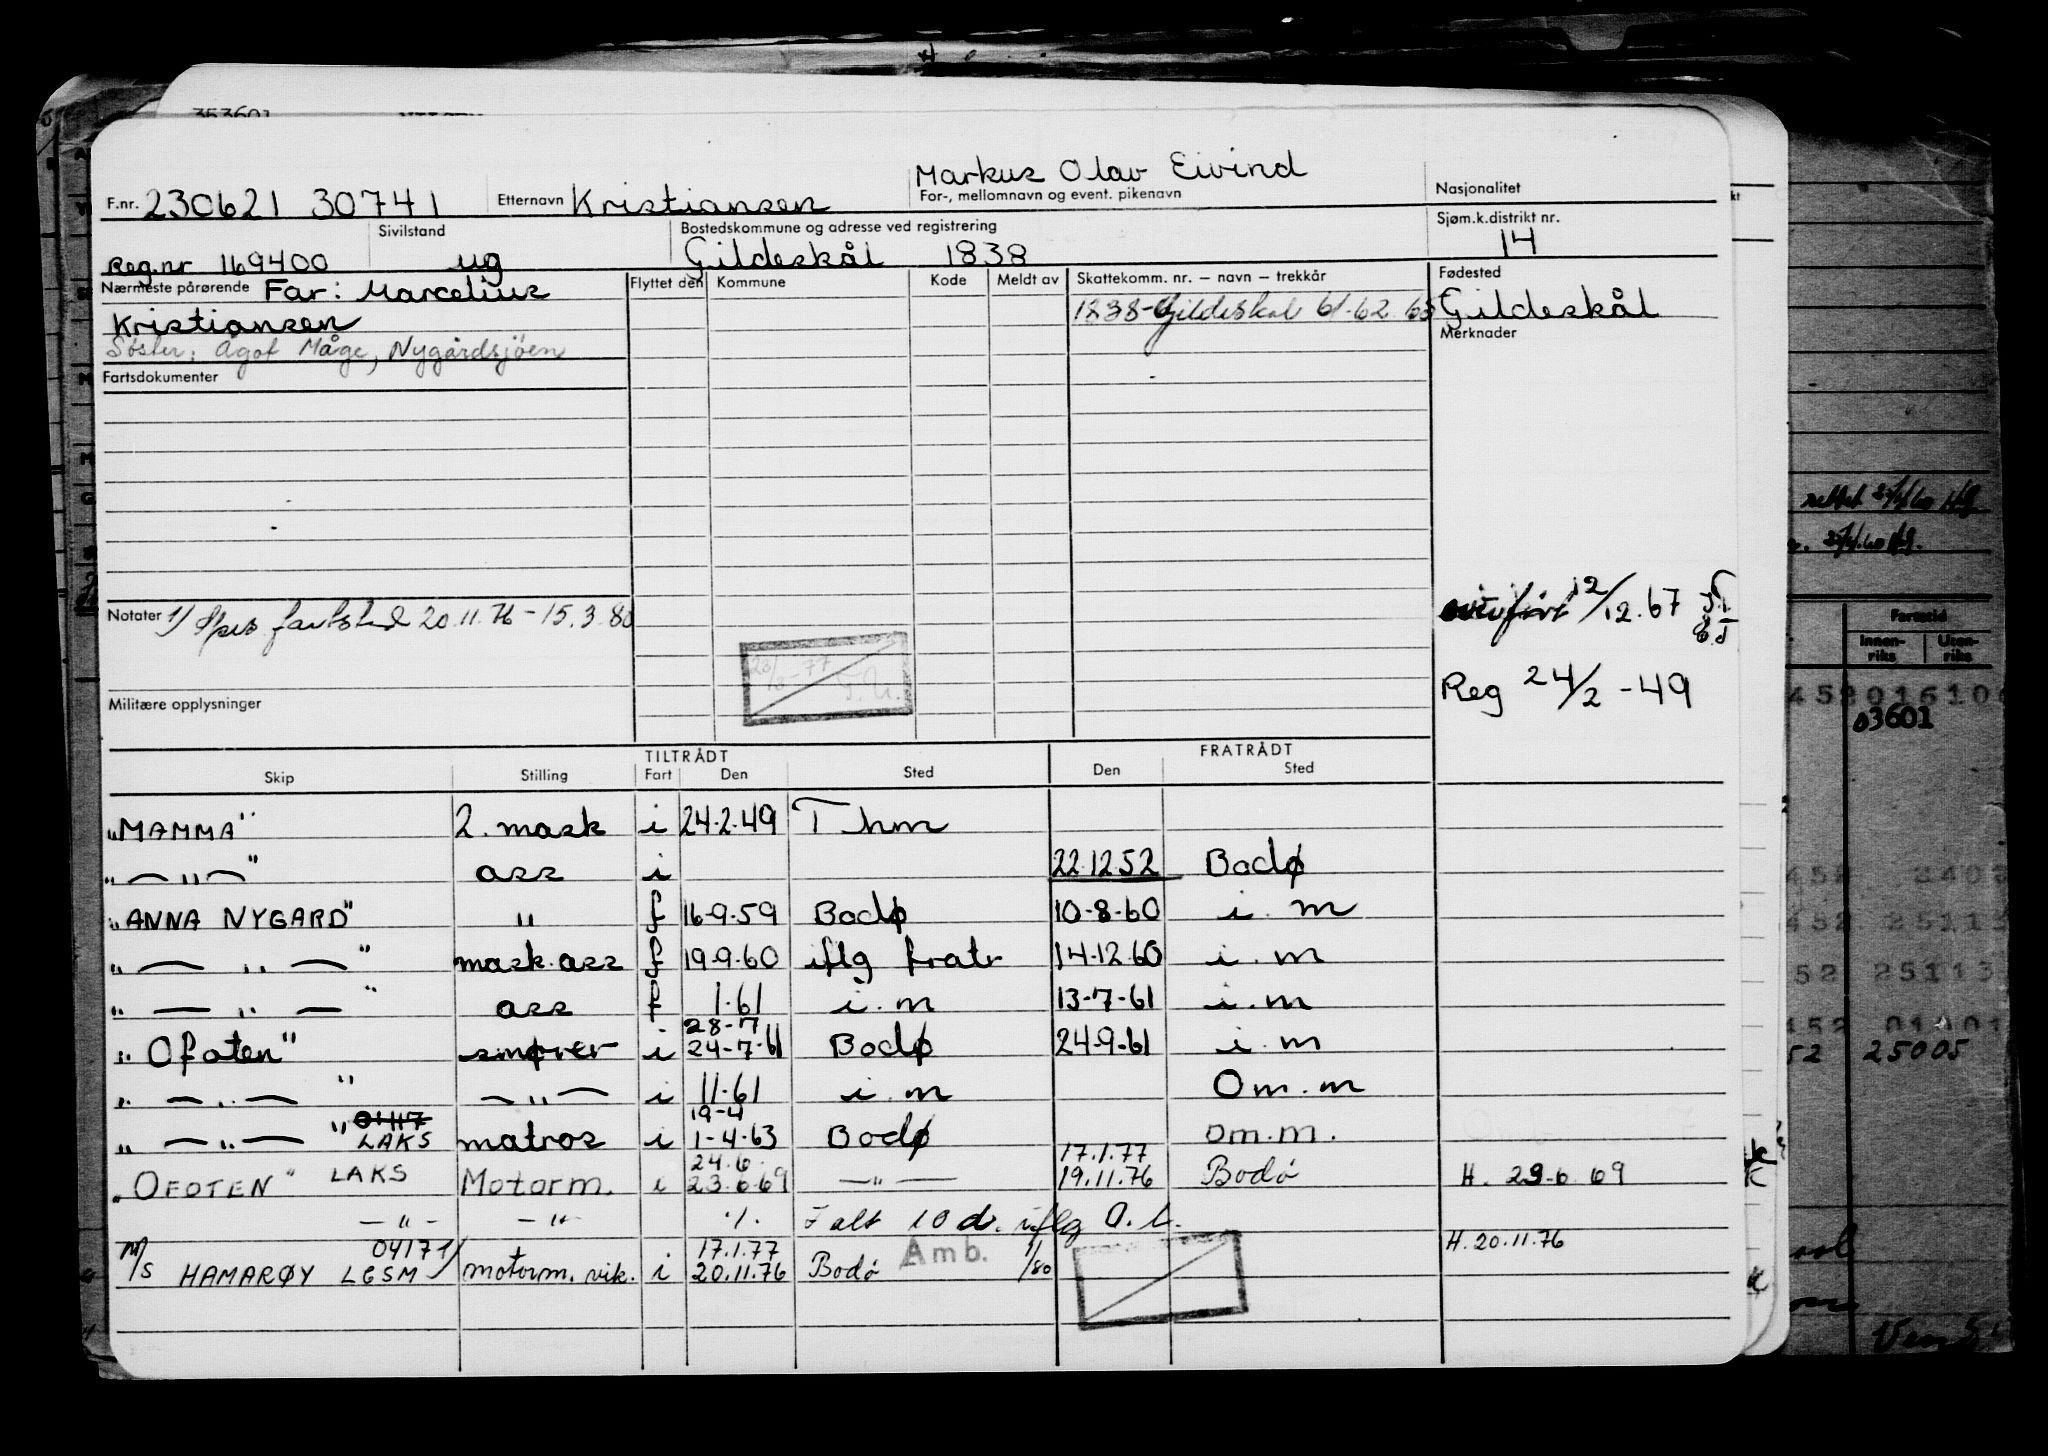 353601
Markus Olav Eivind
F.nr. 230621 30741 Etternavn Kristiansen For-, mellomnavn og event. pikenavn Nasjonalitet
Sivilstand Bostedskommune og adresse ved registrering Sjøm.k.distrikt nr.
Reg.nr 169400 ug Gildeskål 1838 14
Nærmeste pårørende Far: Marcelius Flyttet den Kommune Kode Meldt av Skattekomm. nr. – navn – trekkår Fødested
Kristiansen 1238-Gildeskål 61-62 65 Gildeskål
Søster: Agot Måge, Nygårdsjöen Merknader
Fartsdokumenter
rettet
overført 12/12.67
Notater 1/ Spes. fartstid 20.11.76 – 15.3.80
Reg 24/2 -49
Militære opplysninger
Fartstid
Innen-riks Uten-riks
452016106
03601
TILTRÅDT FRATRÅDT
Skip Stilling Fart Den Sted Den Sted
"MAMMA" 2. mask i 24-2-49 Thm
" — " — " ass i 22.12.52 Bodø
"ANNA NYGARD" " f 16-9-59 Bodø 10-8-60 i. m
" — " — " mask.ass f 19-9-60 iflg fratr 14-12.60 i. m
" — " — " ass f 1-61 i. m 13-7-61 i. m
28-7
"Ofoten" smører i 24-7-61 Bodø 24-9-61 i. m
" — " — " — " — i 11-61 i. m Om. m
0417 19-4
" — " — " LAKS matros i 1-4-63 Bodø om. m.
24.6. 17.1.77
"OFOTEN" LAKS Motorm. i 23.6.69 — " — 19.11.76 Bodø H. 23-6 69
— " — — " — ./. I alt 10 d. iflg A.L.
M/S 0417 1/ 17.1.77 Amb. H. 20.11.76
HAMARØY LGSM motorm. vik. i 20.11.76 Bodø 1/80
25113
25005